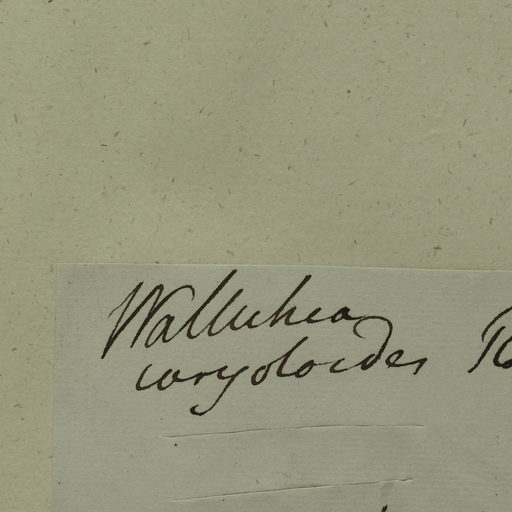 Wallichea
coryoloides